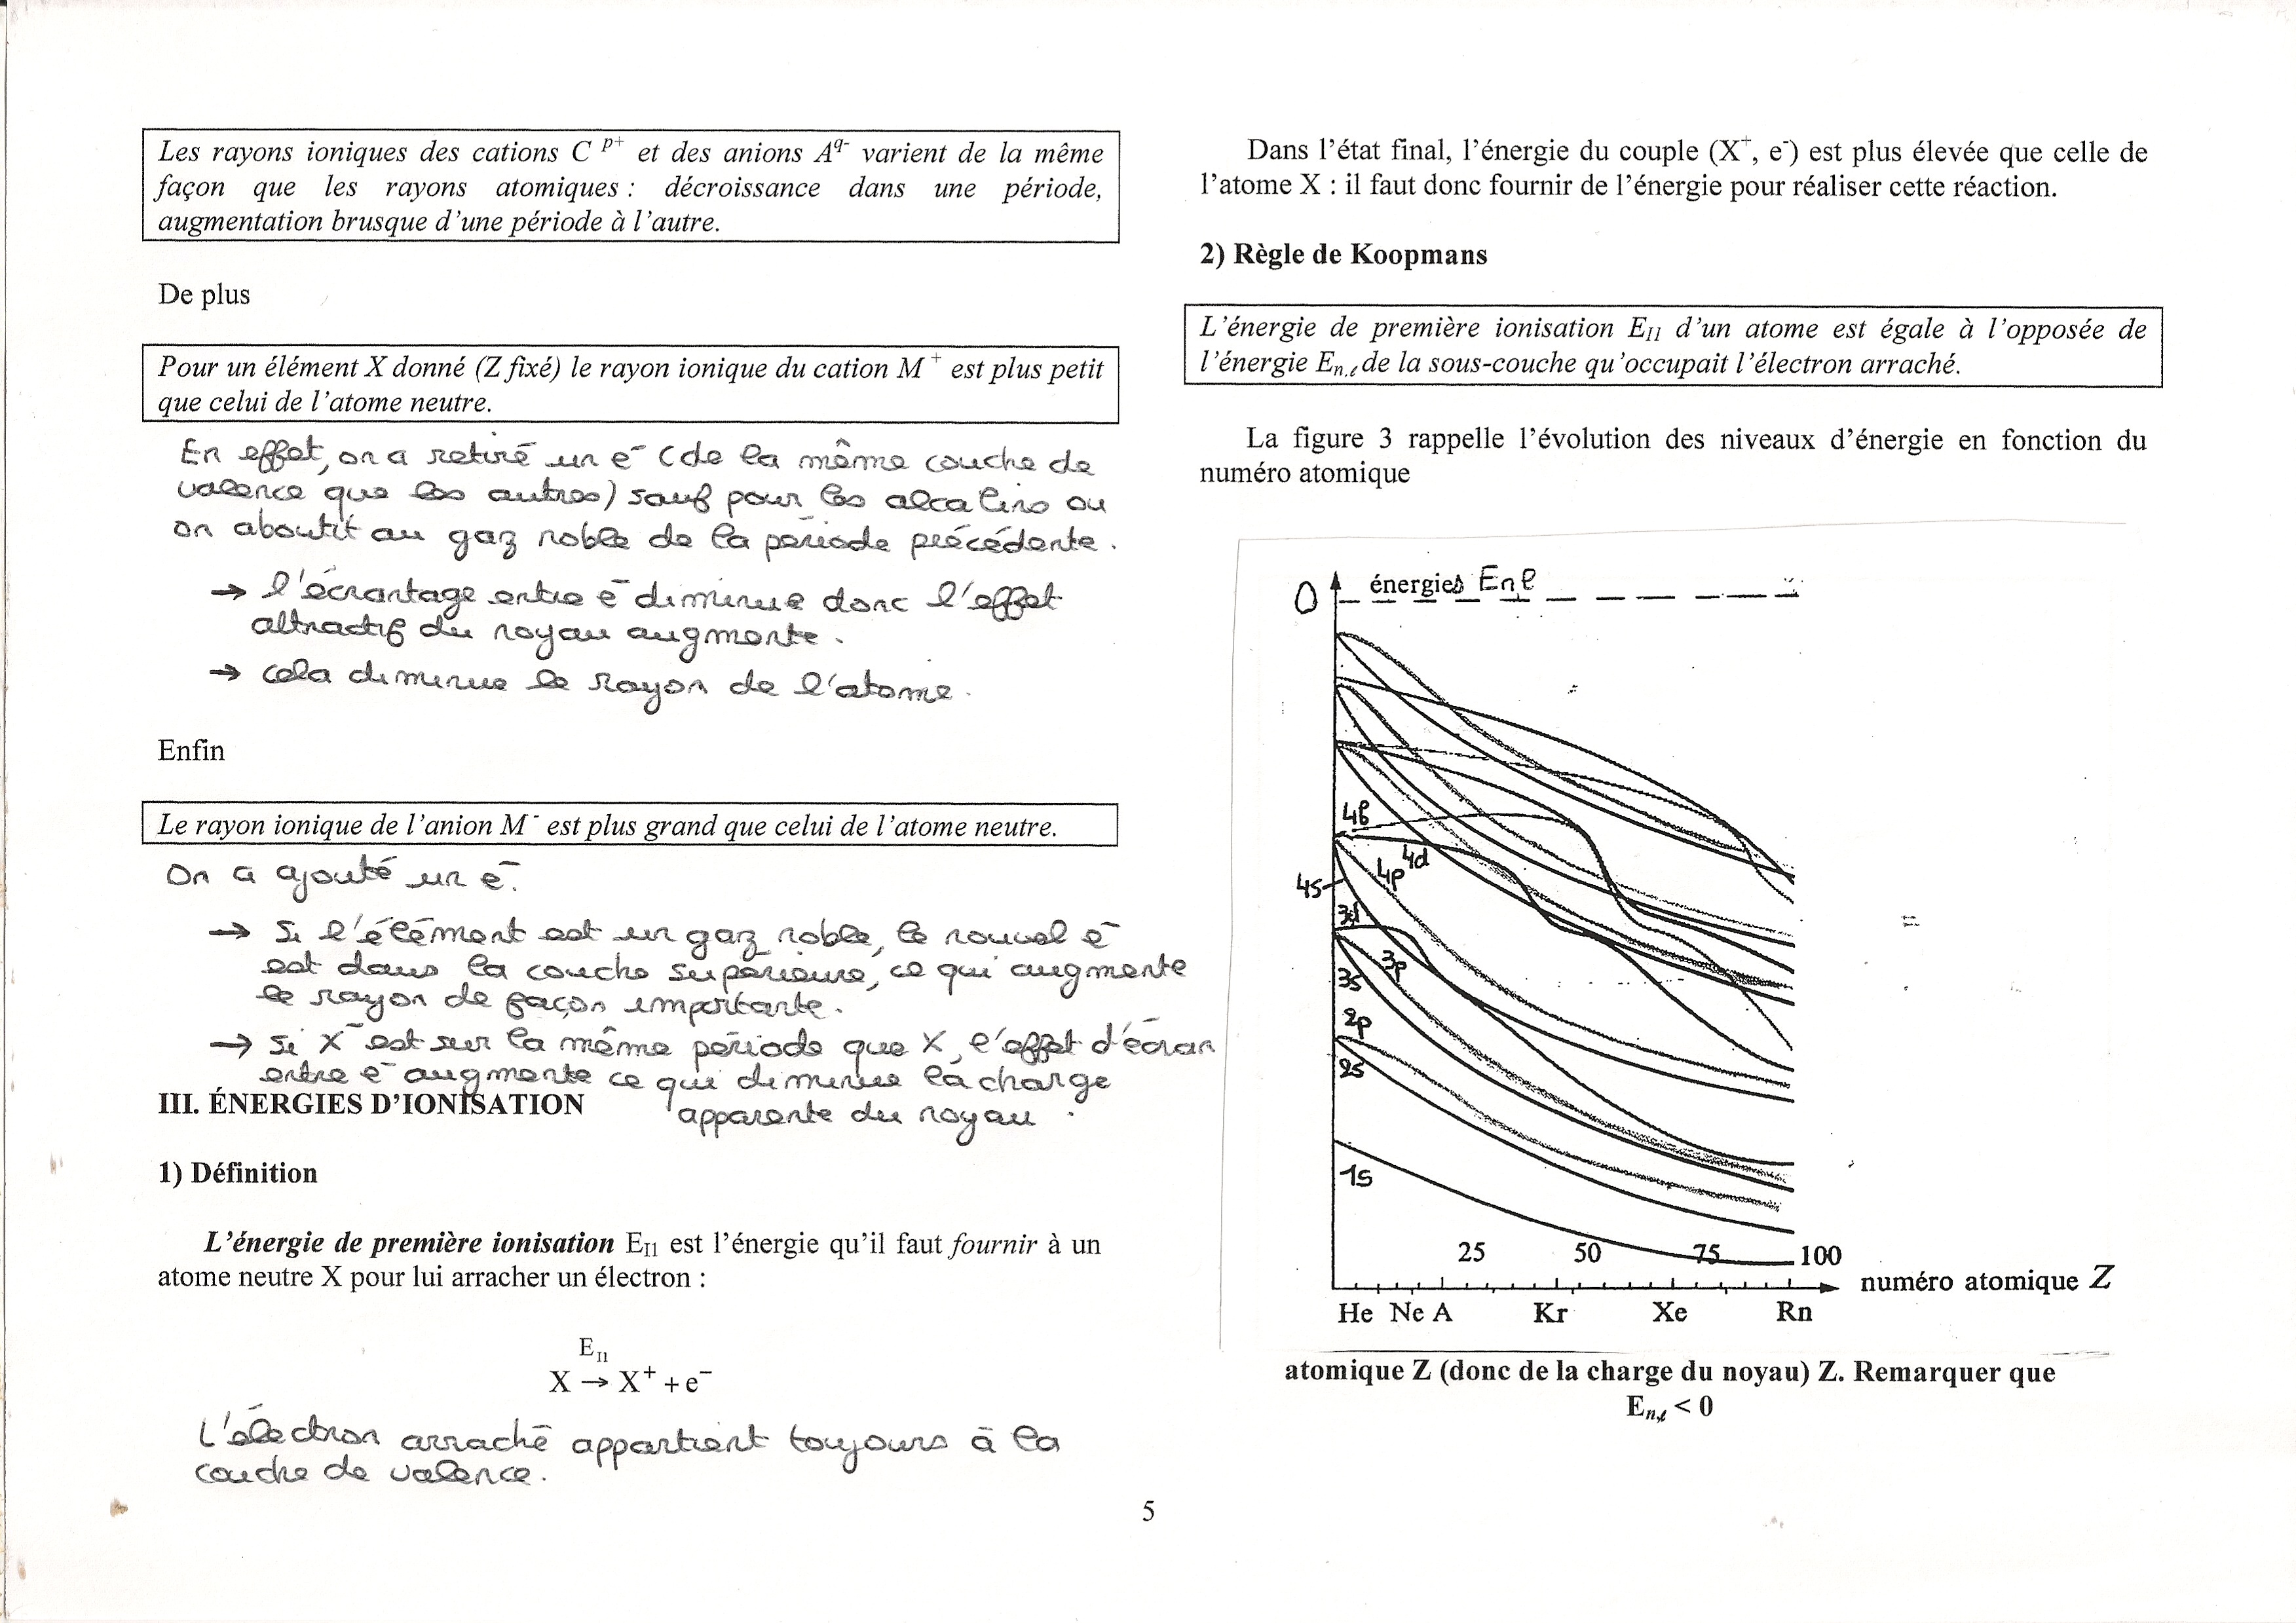 Les rayons ioniques des cations C p+ et des anions Aq- varient de la même
façon que les rayons atomiques : décroissance dans une période,
augmentation brusque d'une période à l'autre.
De plus
Pour un élément X donné (Z fixé) le rayon ionique du cation M + est plus petit
que celui de l'atome neutre.
En effet, on a retiré un e- (de la même couche de
valence que les autres) sauf pour les alcalins ou
on aboutit au gaz noble de la période précédente.
→ l'écrantage entre e- diminue donc l'effet
attractif du noyau augmente.
→ cela diminue le rayon de l'atome.
Enfin
Le rayon ionique de l'anion M - est plus grand que celui de l'atome neutre.
On a ajouté un e-.
→ Si l'élément est un gaz noble, le nouvel e-
est dans la couche supérieure, ce qui augmente
le rayon de façon importante.
→ Si X- est sur la même période que X, l'effet d'écran
entre e- augmente ce qui diminue la charge
apparente du noyau.
III. ÉNERGIES D'IONISATION
1) Définition
L'énergie de première ionisation EI1 est l'énergie qu'il faut fournir à un
atome neutre X pour lui arracher un électron :
EI1
X → X+ + e-
L'électron arraché appartient toujours à la
couche de valence.
Dans l'état final, l'énergie du couple (X+, e-) est plus élevée que celle de
l'atome X : il faut donc fournir de l'énergie pour réaliser cette réaction.
2) Règle de Koopmans
L'énergie de première ionisation EI1 d'un atome est égale à l'opposée de
l'énergie En,ℓ de la sous-couche qu'occupait l'électron arraché.
La figure 3 rappelle l'évolution des niveaux d'énergie en fonction du
numéro atomique
0 énergies Enl
4f
4d
4p
4s
3d
3p
3s
2p
2s
1s
25 50 75 100
numéro atomique Z
He Ne A Kr Xe Rn
atomique Z (donc de la charge du noyau) Z. Remarquer que
En,ℓ < 0
5